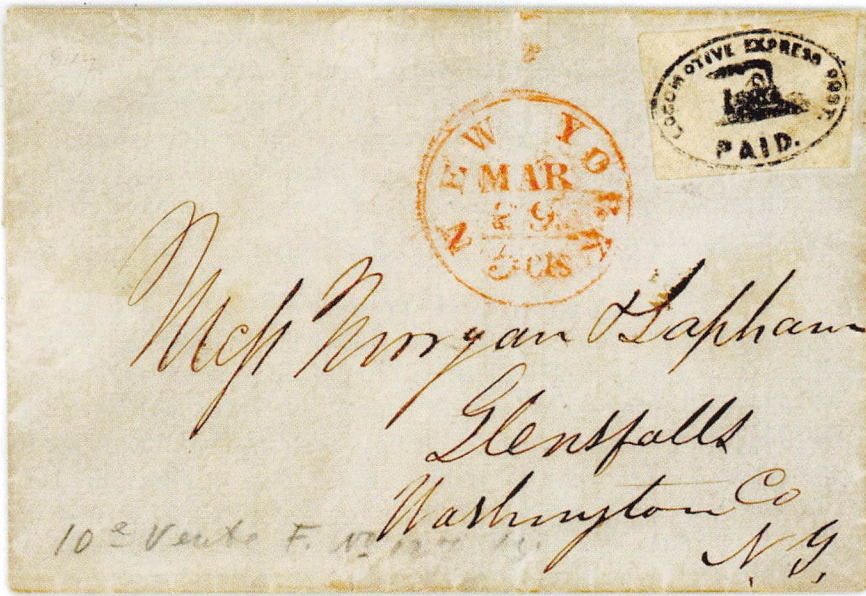 LOCOMOTIVE EXPRESS POST.
PAID.
NEW YORK
MAR
29
CTS
Mess Morgan & Lapham
Glensfalls
Washington Co
N.Y.
10e Vente F. No